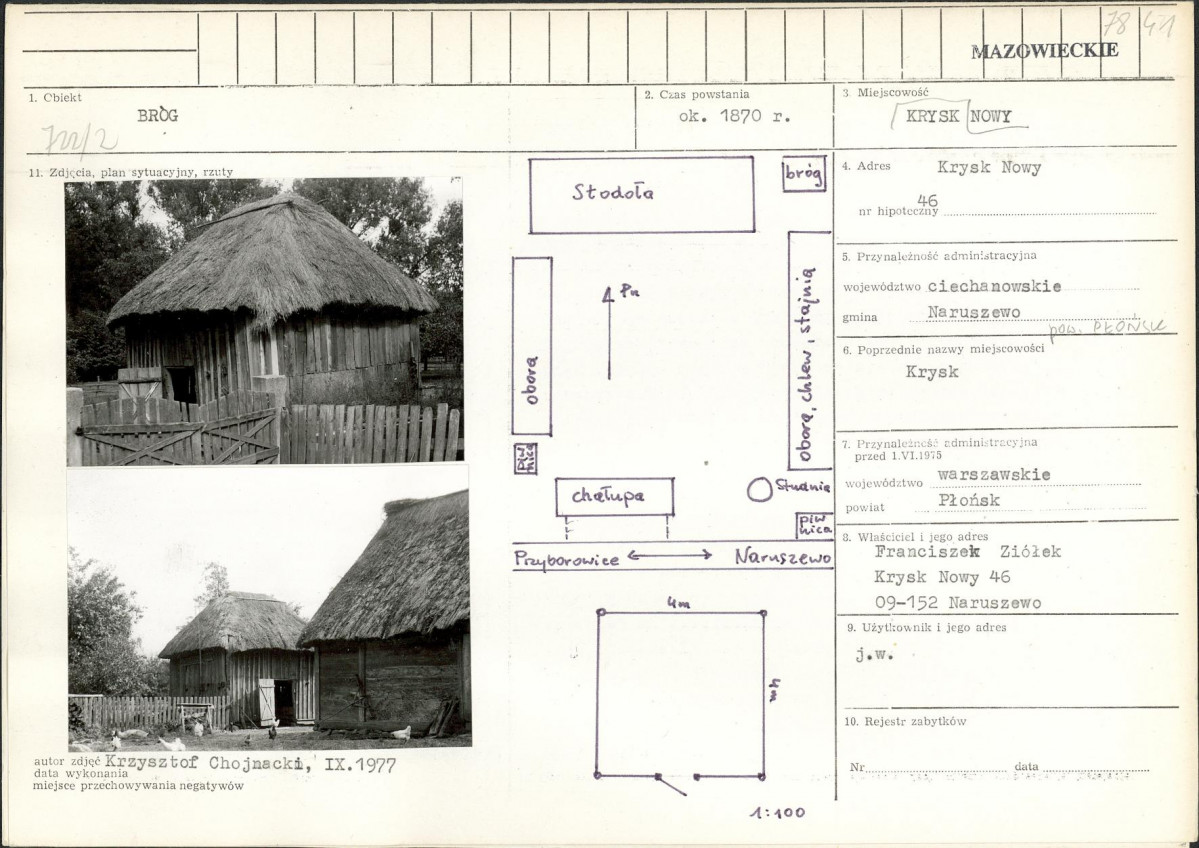 78 41
MAZOWIECKIE
1. Obiekt
BRÓG
2. Czas powstania
ok. 1870 r.
3 Miejscowość
KRYSK NOWY
11. Zdjęcia, plan sytuacyjny, rzuty
Stodoła
bróg
Pn
obora
obora, chlew, stajnia
piw
nica
chałupa
Studnia
piw
nica
Przyborowice
Naruszewo
4m
4m
1:100
autor zdjęć Krzysztof Chojnacki, IX.1977
data wykonania
miejsce przechowywania negatywów
4. Adres Krysk Nowy
46
nr hipoteczny
5. Przynależność administracyjna
województwo ciechanowskie
gmina Naruszewo
pow. PŁOŃSK
6. Poprzednie nazwy miejscowości
Krysk
7. Przynależność administracyjna
przed 1.VI.1975
województwo warszawskie
powiat Płońsk
8. Właściciel i jego adres
Franciszek Ziółek
Krysk Nowy 46
09-152 Naruszewo
9. Użytkownik i jego adres
j.w.
10. Rejestr zabytków
Nr data